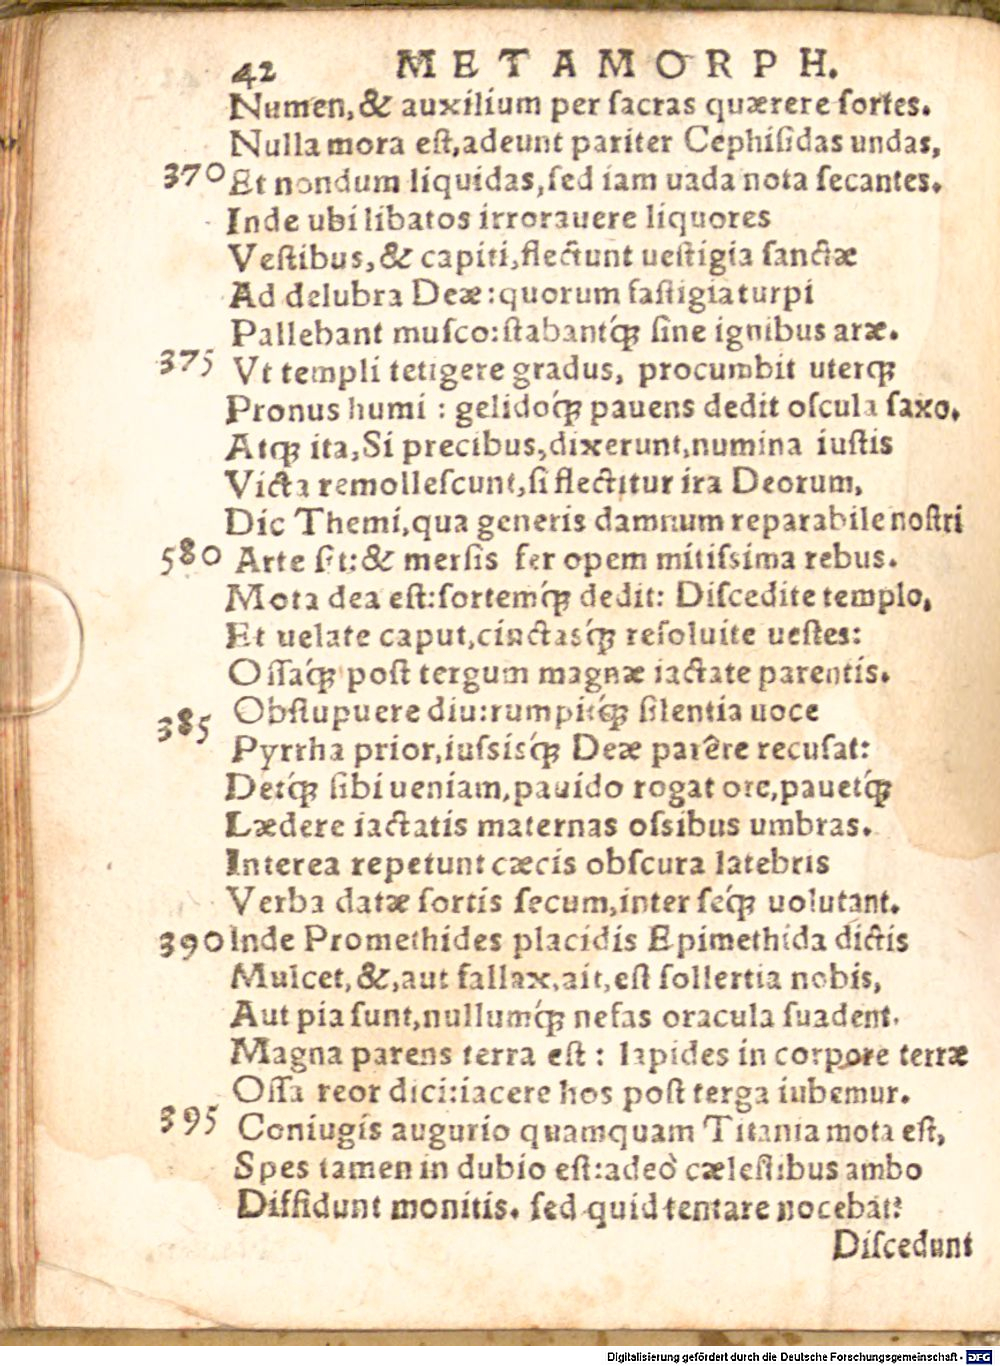 42 METAMORPH.
Numen,& auxilium per ſacras quærere ſortes.
Nulla mora eſt,adeunt pariter Cephiſidas undas,
370 Et nondum liquidas,ſed iam uada nota ſecantes.
Inde ubi libatos irrorauere liquores
Veſtibus,& capiti,flectunt ueſtigia ſanctæ
Ad delubra Deæ:quorum faſtigia turpi
Pallebant muſco:ſtabantq́ꝫ ſine ignibus aræ.
375 Vt templi tetigere gradus, procumbit uterqꝫ
Pronus humi : gelidoq́ꝫ pauens dedit oſcula ſaxo.
Atqꝫ ita,Si precibus,dixerunt,numina iuſtis
Victa remolleſcunt,ſi flectitur ira Deorum,
Dic Themi,qua generis damnum reparabile noſtri
580 Arte ſit:& merſis fer opem mitiſsima rebus.
Mota dea eſt:ſortemq́ꝫ dedit: Diſcedite templo,
Et uelate caput,cinctasq́ꝫ reſoluite ueſtes:
Oſſaq́ꝫ poſt tergum magnæ iactate parentis.
Obſtupuere diu:rumpitq́ꝫ ſilentia uoce
385 Pyrrha prior,iuſsisq́ꝫ Deæ parêre recuſat:
Detq́ꝫ ſibi ueniam,pauido rogat ore,pauetq́ꝫ
Lædere iactatis maternas oſsibus umbras.
Interea repetunt cæcis obſcura latebris
Verba datæ ſortis ſecum,inter ſeq́ꝫ uolutant.
390 Inde Promethides placidis Epimethida dictis
Mulcet,&,aut fallax,ait,eſt ſollertia nobis,
Aut pia ſunt,nullumq́ꝫ nefas oracula ſuadent.
Magna parens terra eſt : lapides in corpore terræ
Oſſa reor dici:iacere hos poſt terga iubemur.
395 Coniugis augurio quamquam Titania mota eſt,
Spes tamen in dubio eſt:adeò cæleſtibus ambo
Diffidunt monitis. ſed quid tentare nocebat?
Diſcedunt
Digitalisierung gefördert durch die Deutsche Forschungsgemeinschaft - DFG